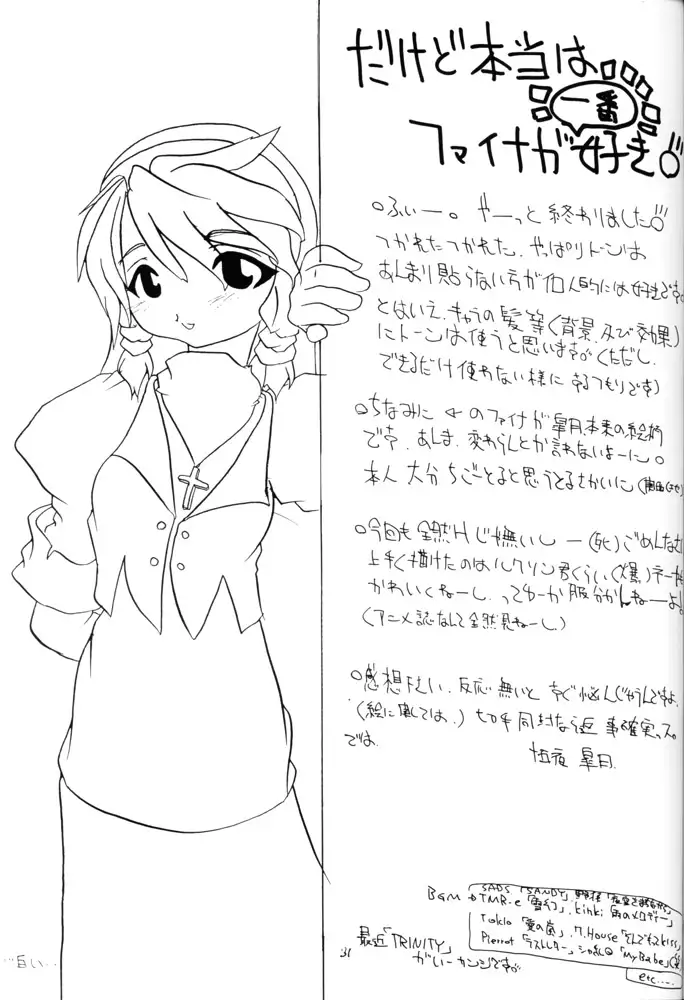 だけど本当は
一番
ファイナが好き。
○ふぃー。やーっと終わりました
つかれたつかれた、やっぱりトーンは
あんまり貼らない方が個人的には好きです。
とはいえ、キャラの髪等(背景、及び効果)
にトーンは使うと思います。(ただし、
できるだけ使わない様にするつもりです)
○ちなみに ←のファイナが皐月本来の絵柄
です。あんま、変わらんとか言わないよーに。
本人 大分ちごとると思うとるさかいに
○今回も全然Hじゃ無いしー(死)ごめんなさ
上手く描けたのはルクリン君くらい(爆)ネーナも
かわいくねーし、ってゆーか服分かんねーよ。
(アニメ誌なんて全然見ねーし)
○感想下さい、反応無いとすぐ悩んじゃうんですよ、
(絵に関しては、)切手同封なら返事確実っス。
では。
皐月
BGM→
SADS「SANDY」
TMR-e「雪幻」、Kinki「雨のメロディー」
Tokio「愛の嵐」、
Pierrot「ラストレター」、シャ乱Q「MyBabe」
etc.....
最近「TRINITY」
がいーカンジです。
31